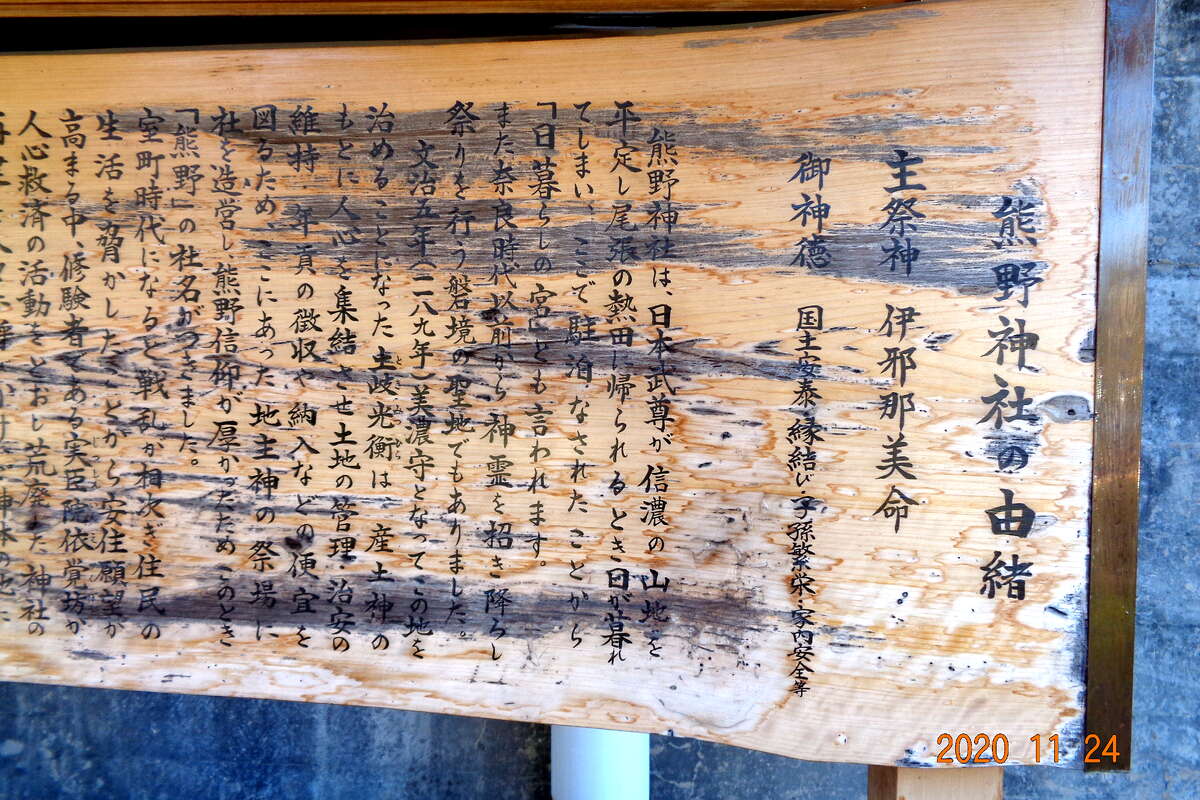 熊野神社の由緒
主祭神　伊邪那美命
御神徳　国土安泰・縁結び・子孫繁栄・家内安全等
熊野神社は、日本武尊が信濃の山地を
平定し尾張の熱田に帰られるとき日が暮れ
てしまい、ここで駐泊なされたことから
「日暮らしの宮」とも言われます。
また奈良時代以前から神霊を招き降ろし
祭りを行う磐境の聖地でもありました。
文治五年（一一八九年）美濃守となってこの地を
治めることになった土岐光衡は産土神の
もとに人心を集結させ土地の管理・治安の
維持　年貢の徴収や納入などの便宜を
図るため、ここにあった地主神の祭場に
社を造営し、熊野信仰が厚かったため　このとき
「熊野」の社名がつきました。
室町時代になると戦乱が相次ぎ住民の
生活を脅かしたことから安住願望が
高まる中、修験者である実臣院依覚坊が
人心救済の活動をとおし荒廃した神社の
2020 11 24